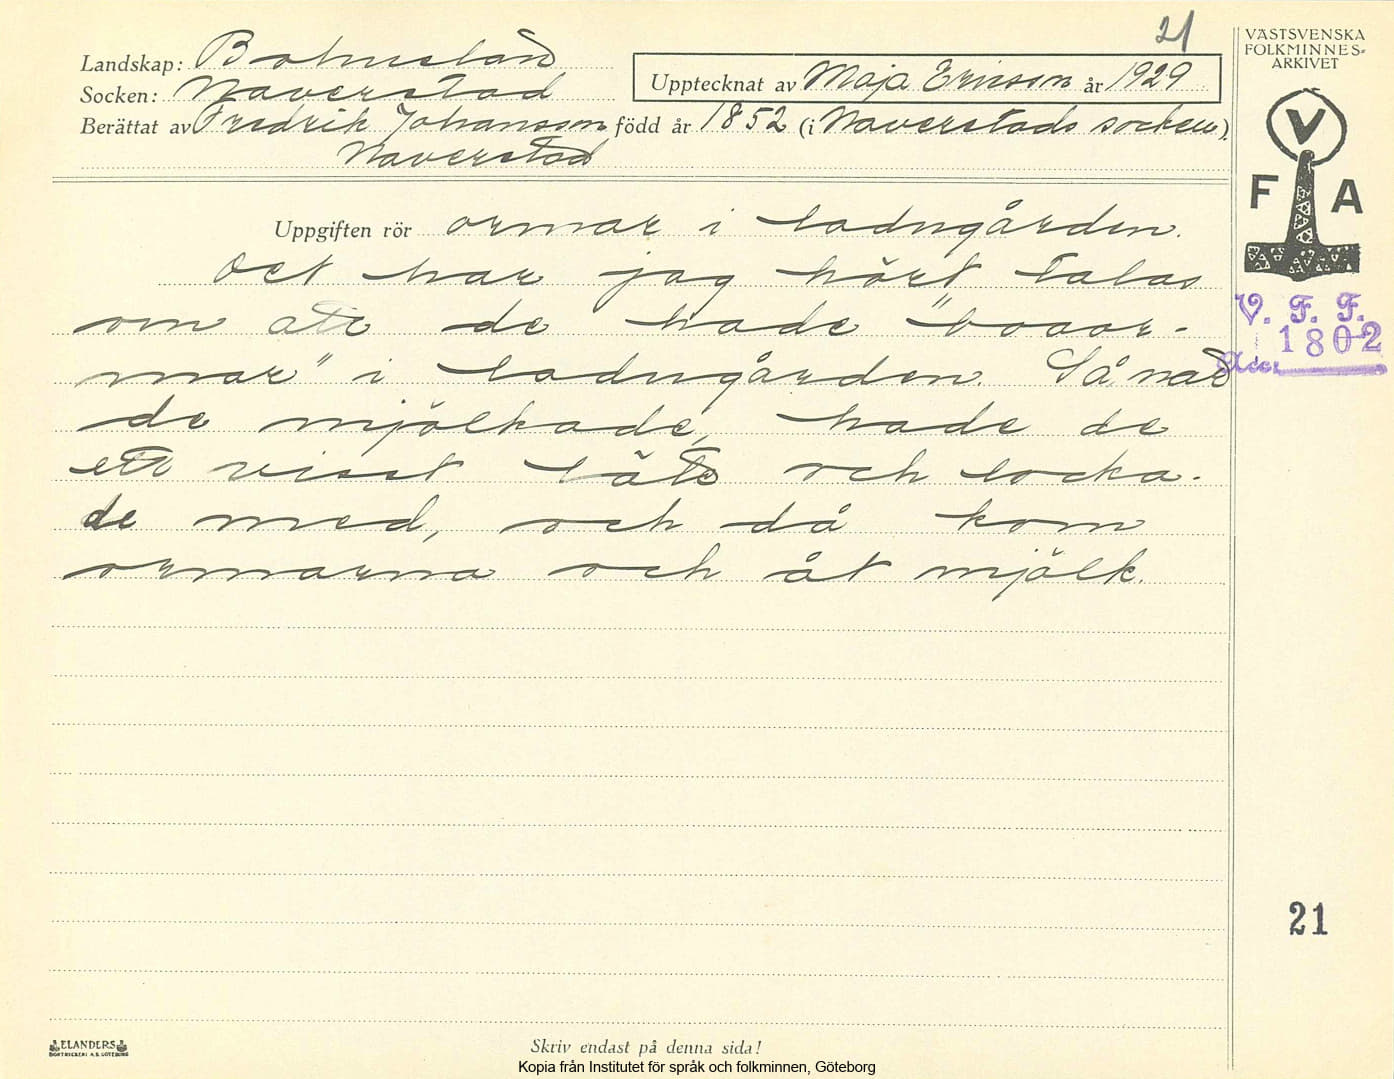 21
Landskap: Bohuslän
Socken: Naverstad
Upptecknat av Maja Ericson år 1929
Berättat av Fredrik Johansson född år 1852 (i Naverstads socken)
Naverstad
VÄSTSVENSKA
FOLKMINNES-
ARKIVET
V
F A
V. F. F.
1802
Uppgiften rör ormar i ladugården.
Det har jag hört talas
om att de hade "boaor-
mar" i ladugården. Så när
de mjölkade, hade de
ett visst läte och locka-
de med, och då kom
ormarna och åt mjölk.
21
ELANDERS
BOKTRYCKERI A.B. GÖTEBORG
Skriv endast på denna sida!
Kopia från Institutet för språk och folkminnen, Göteborg